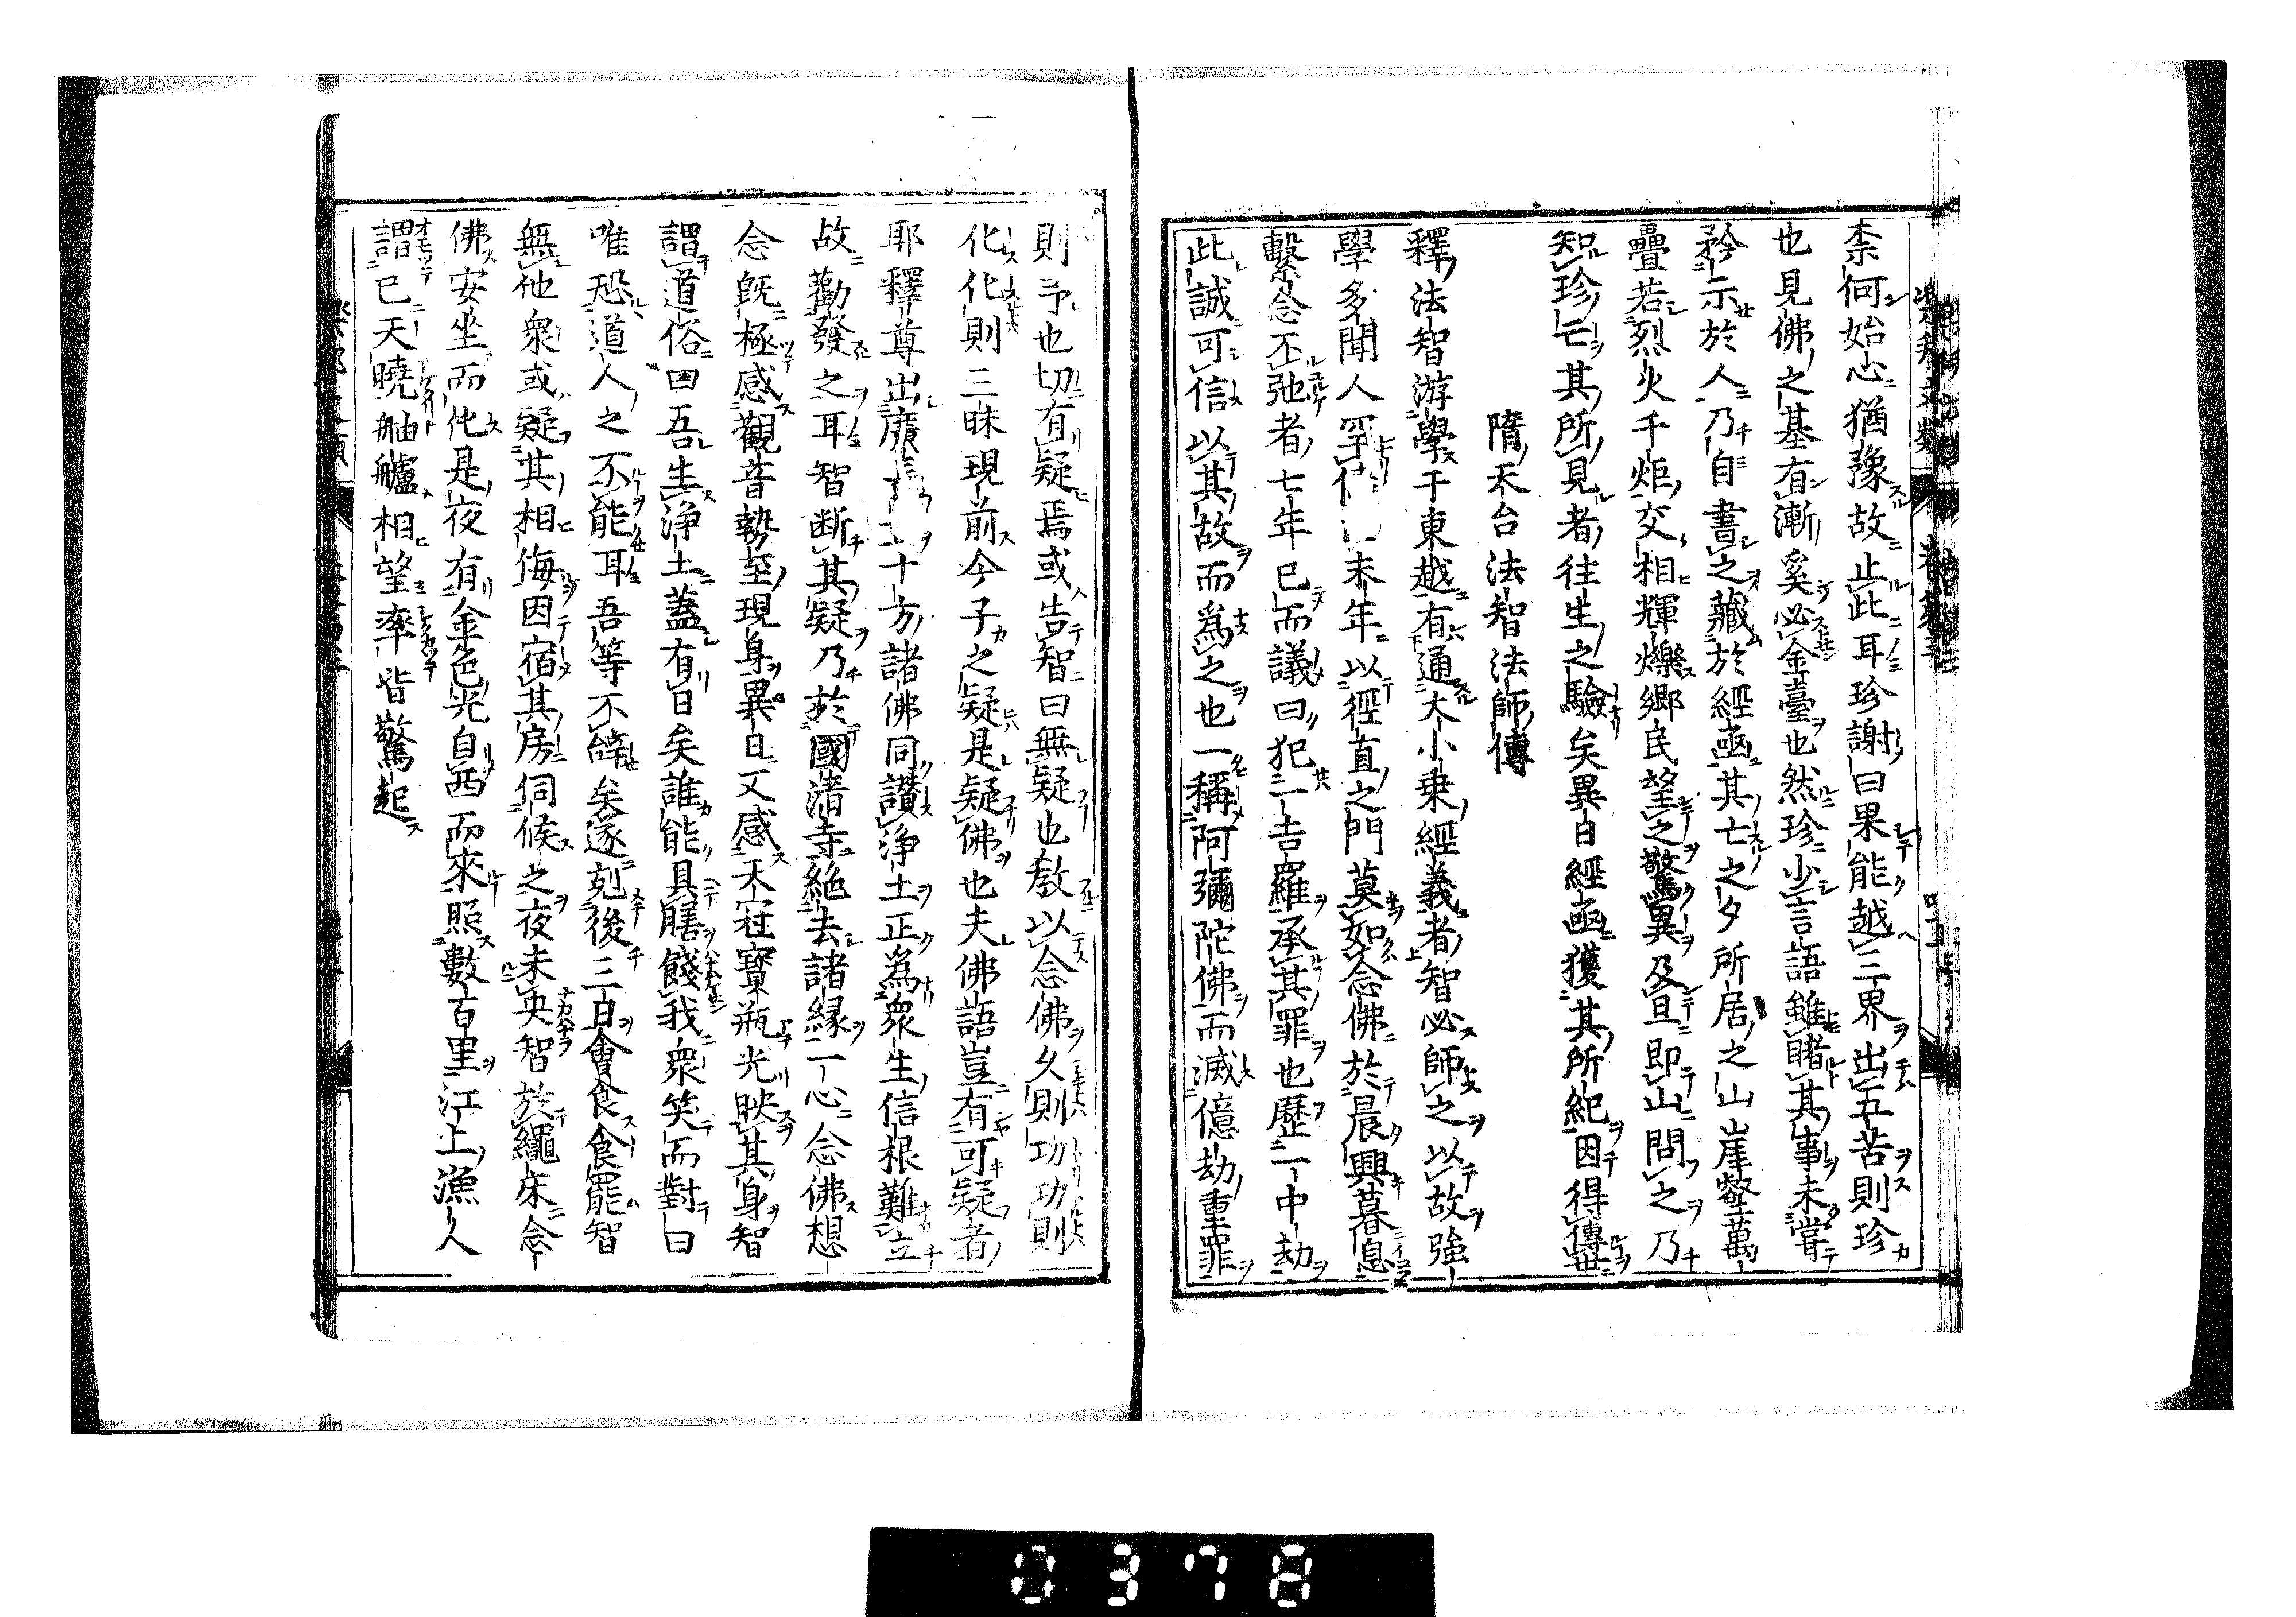 柰何始心猶豫故止此耳珍謝曰果能越三界出五苦則珍
也見佛之基有漸奚必金臺也然珍少言語雖睹其事未嘗
矜示於人乃自書之藏於經凾其亡之夕所居之山崖壑萬
疊若烈火千炬交相輝爍鄉民望之驚異及旦即山問之乃
知珍亡其所見者往生之驗矣異日經凾獲其所紀因得傳世
隋天台法智法師傳
釋法智游學于東越有通大小乗經義者智必師之以故強
學多聞人罕 末年以徑直之門莫如念佛於晨興暮息
繫念不弛者七年已而議曰犯一吉羅承其罪也歷一中劫
此誠可信以其故而爲之也一稱阿彌陀佛而滅億劫重罪
則予也切有疑焉或告智曰無疑也教以念佛久則功功則
化化則三昧現前今子之疑是疑佛也夫佛語豈有可疑者
耶釋尊出廣 十方諸佛同讚淨土正爲衆生信根難立
故勸發之耳智断其疑乃於國清寺絶去諸緣一心念佛想
念既極感觀音勢至現身異日又感天冠寶瓶光映其身智
謂道俗曰吾生淨土蓋有日矣誰能具膳餞我衆笑而對曰
唯恐道人之不能耳吾等不辭矣遂剋後三日會食食罷智
無他衆或疑其相侮因宿其房伺候之夜未央智於繩床念
佛安坐而化是夜有金色光自西而來照數百里江上漁人
謂已天曉舳艫相望率皆驚起
0378